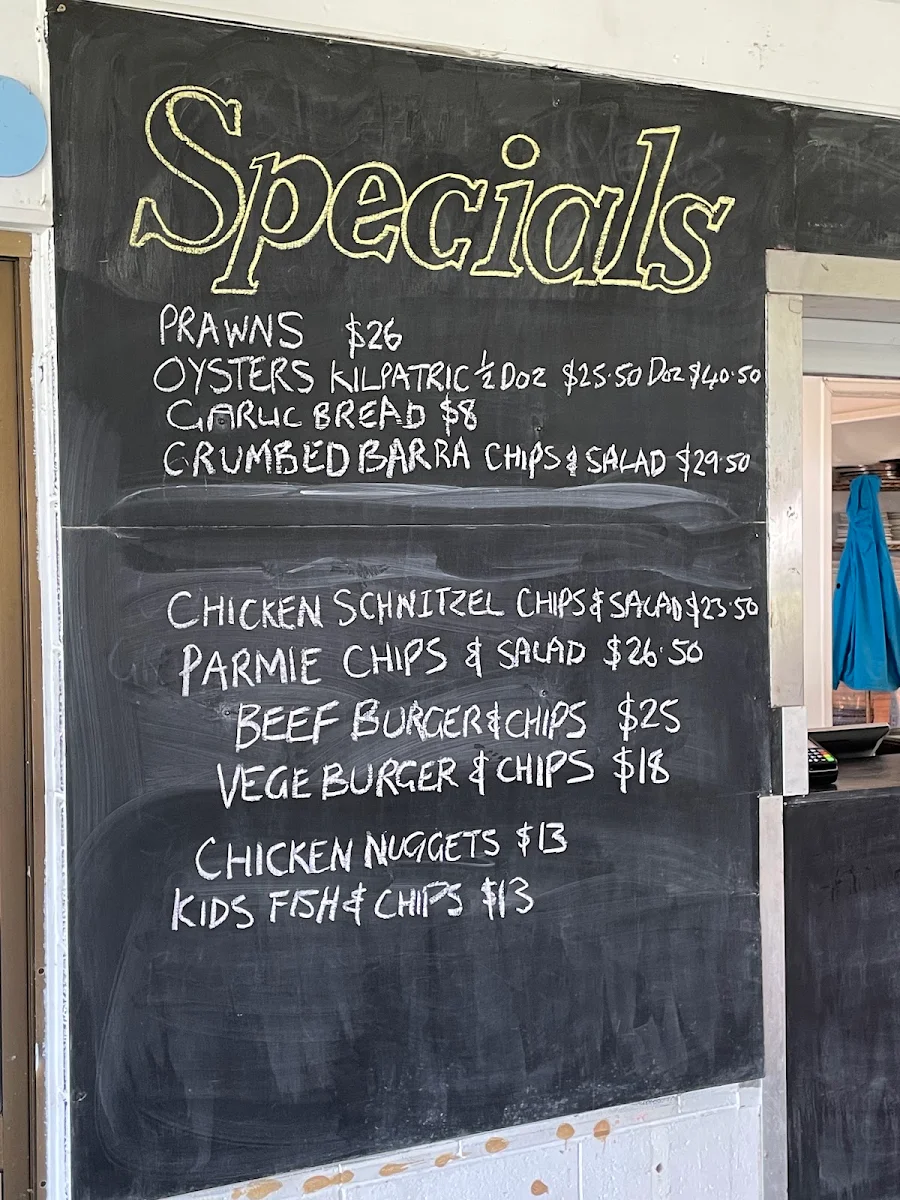 Specials
PRAWNS $26
OYSTERS KILPATRIC ½ DOZ $25.50 DOZ $40.50
GARLIC BREAD $8
CRUMBED BARRA CHIPS & SALAD $29.50
CHICKEN SCHNITZEL CHIPS & SALAD $23.50
PARMIE CHIPS & SALAD $26.50
BEEF BURGER & CHIPS $25
VEGE BURGER & CHIPS $18
CHICKEN NUGGETS $13
KIDS FISH & CHIPS $13